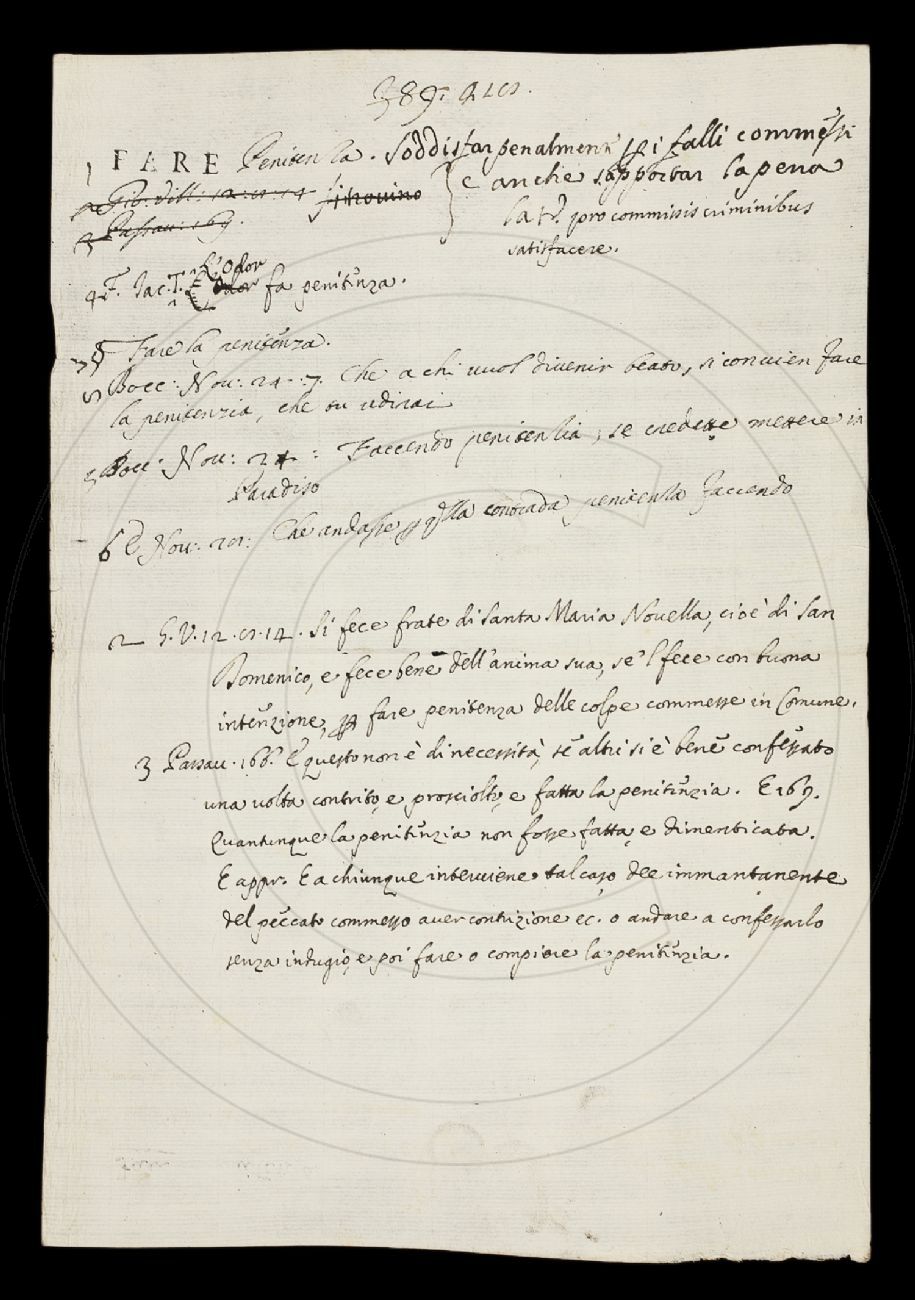 389.
1 FARE Penitenza. Soddisfar penalmente pe i falli commessi
e anche sopportar la pena
2 Gio. Vill: 12. cr. 14 si trovino
3 Passav: 169.
Lat. pro commissis criminibus
satisfacere.
L'Odor
4 F. Iac. T. fa penitenza.
Fare la penitenza.
5 Bocc: Nov: 24. 7. Che a chi vuol divenir beato, si convien fare
la penitenzia, che tu udirai
5 Bocc: Nov: 24: Faccendo penitenzia, se credette mettere in
Paradiso
6 E Nov: Che andasse p qlla contrada penitenza faccendo
2 G. V. 12. cr. 14. Si fece frate di Santa Maria Novella, cioè di San
Domenico, e fece bene dell'anima sua, se'l fece con buona
intenzione, p fare penitenza delle colpe commesse in Comune.
3 Passav. 166. E questo non è di necessità, se altri si è bene confessato
una volta contrito, e prosciolto, e fatta la penitenzia. E 169.
Quantunque la penitenzia non fosse fatta, e dimenticata.
E appr. E a chiunque interviene tal caso, dee immantanente
del peccato commesso aver contrizione ec. o andare a confessarlo
senza indugio, e poi fare o compiere la penitenzia.